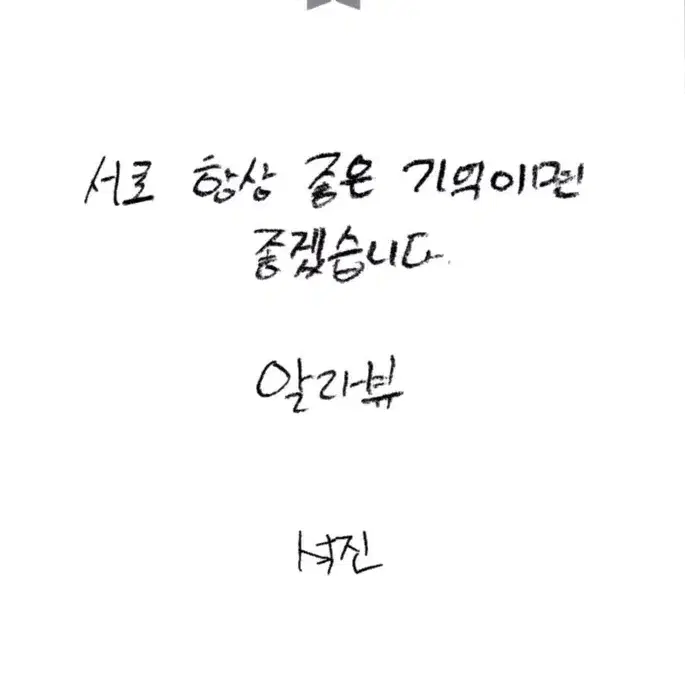 서로 항상 좋은 기억이면
좋겠습니다.
알라뷰
석진